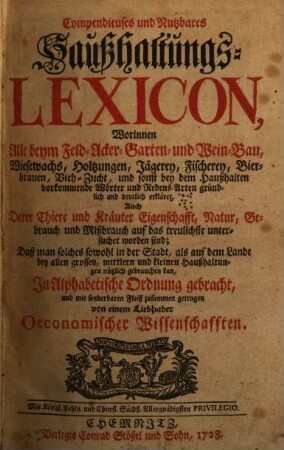 Compendieuses und Nutzbares
Haußhaltungs-
LEXICON,
Worinnen
Alle beym Feld-Acker-Garten-und Wein-Bau,
Wiesewachs, Holtzungen, Jägerey, Fischerey, Bier-
brauen, Vieh-Zucht, und sonst bey dem Haußhalten
vorkommende Wörter und Redens-Arten gründ-
lich und deutlich erkläret,
Auch
Derer Thiere und Kräuter Eigenschafft, Natur, Ge-
brauch und Mißbrauch auf das treulichste unter-
suchet worden sind;
Daß man solches sowohl in der Stadt, als auf dem Lande
bey allen grossen, mittlern und kleinen Haußhaltun-
gen nützlich gebrauchen kan,
In Alphabetische Ordnung gebracht,
und mit sonderbaren Fleiß zusammen getragen
von einem Liebhaber
Oeconomischer Wissenschafften.
Mit Königl. Pohln. und Churfl. Sächß. Allergnädigsten PRIVILEGIO.
CHEMNITZ,
Verlegts Conrad Stößel und Sohn, 1728.